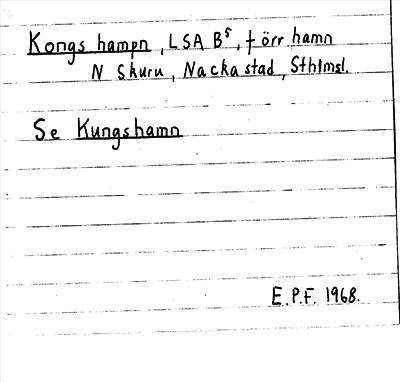 Kongs hampn, LSA B⁵, † örr hamn
N Skuru, Nacka stad, Sthlmsl.
Se Kungshamn
E.P.F. 1968.